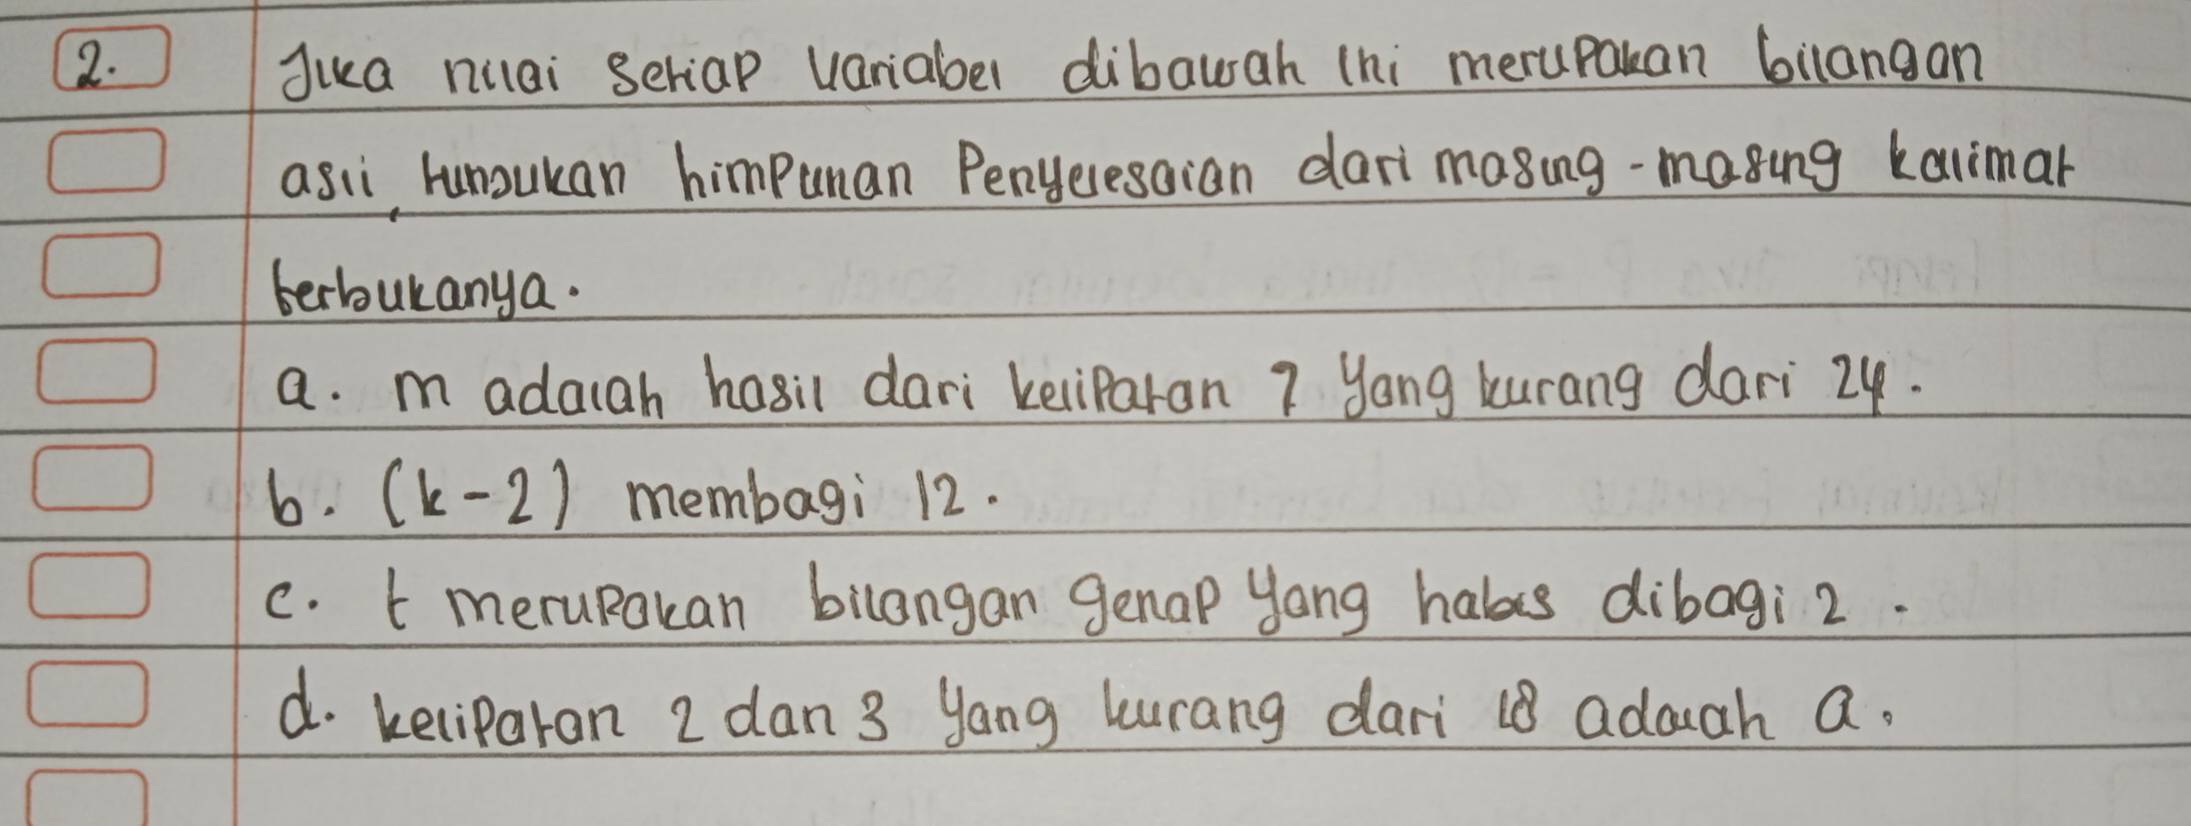 2. Jika nilai setiap variabel dibawah ini merupakan bilangan
asli, tunjukan himpunan Penyelesaian dari masing-masing kalimat
terbukanya.
a. m adalah hasil dari kelipatan 7 yang kurang dari 24.
b. (k-2) membagi 12.
c. t merupakan bilangan genap yang habis dibagi 2.
d. kelipatan 2 dan 3 yang kurang dari 18 adalah a.